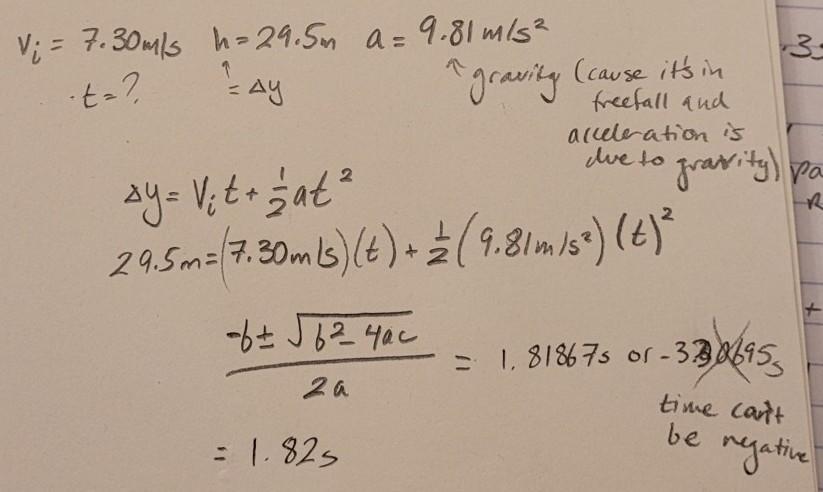 vᵢ = 7.30m/s h = 29.5m a = 9.81 m/s²
t = ? ↑ = Δy ↑ gravity (cause it's in
freefall and
acceleration is
due to gravity)
Δy = Vᵢt + ½at²
29.5m = (7.30m/s)(t) + ½(9.81m/s²)(t)²
-b ± √b² - 4ac
2a
= 1.81867s or
time can't
be negative
= 1.82s